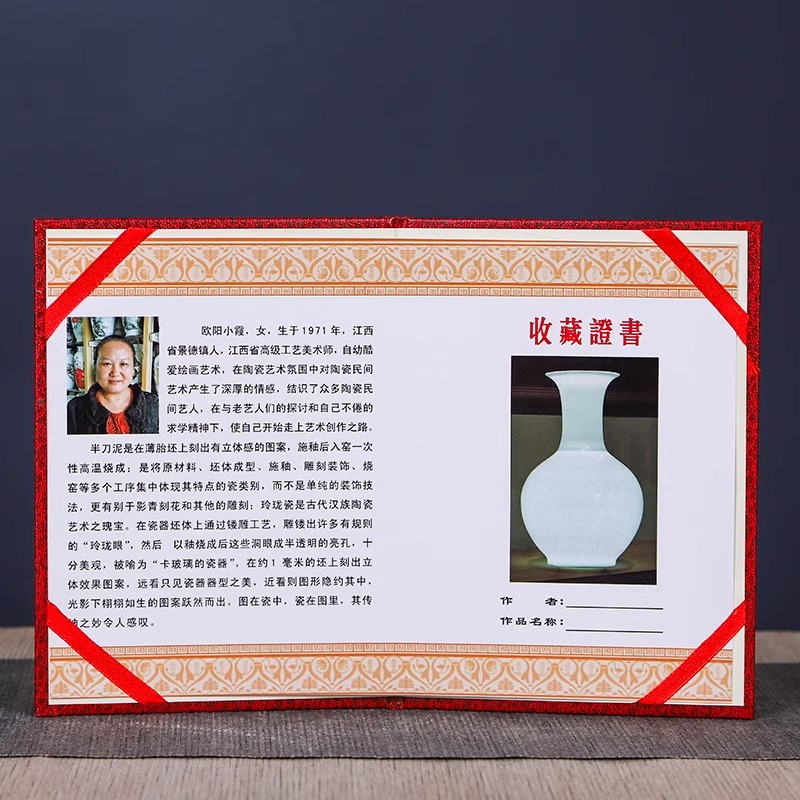 欧阳小霞，女，生于1971年，江西
省景德镇人，江西省高级工艺美术师，自幼酷
爱绘画艺术，在陶瓷艺术氛围中对陶瓷民间
艺术产生了深厚的情感，结识了众多陶瓷民
间艺人，在与老艺人们的探讨和自己不倦的
求学精神下，使自己开始走上艺术创作之路。
半刀泥是在薄胎坯上刻出有立体感的图案，施釉后入窑一次
性高温烧成；是将原材料、坯体成型、施釉、雕刻装饰、烧
窑等多个工序集中体现其特点的瓷类别，而不是单纯的装饰技
法，更有别于影青刻花和其他的雕刻；玲珑瓷是古代汉族陶瓷
艺术之瑰宝。在瓷器坯体上通过镂雕工艺，雕镂出许多有规则
的“玲珑眼”，然后 以釉烧成后这些洞眼成半透明的亮孔，十
分美观，被喻为“卡玻璃的瓷器”。在约1毫米的坯上刻出立
体效果图案，远看只见瓷器器型之美，近看则图形隐约其中，
光影下栩栩如生的图案跃然而出。图在瓷中，瓷在图里，其传
之妙令人感叹。
收藏證書
作 者：
作品名称：